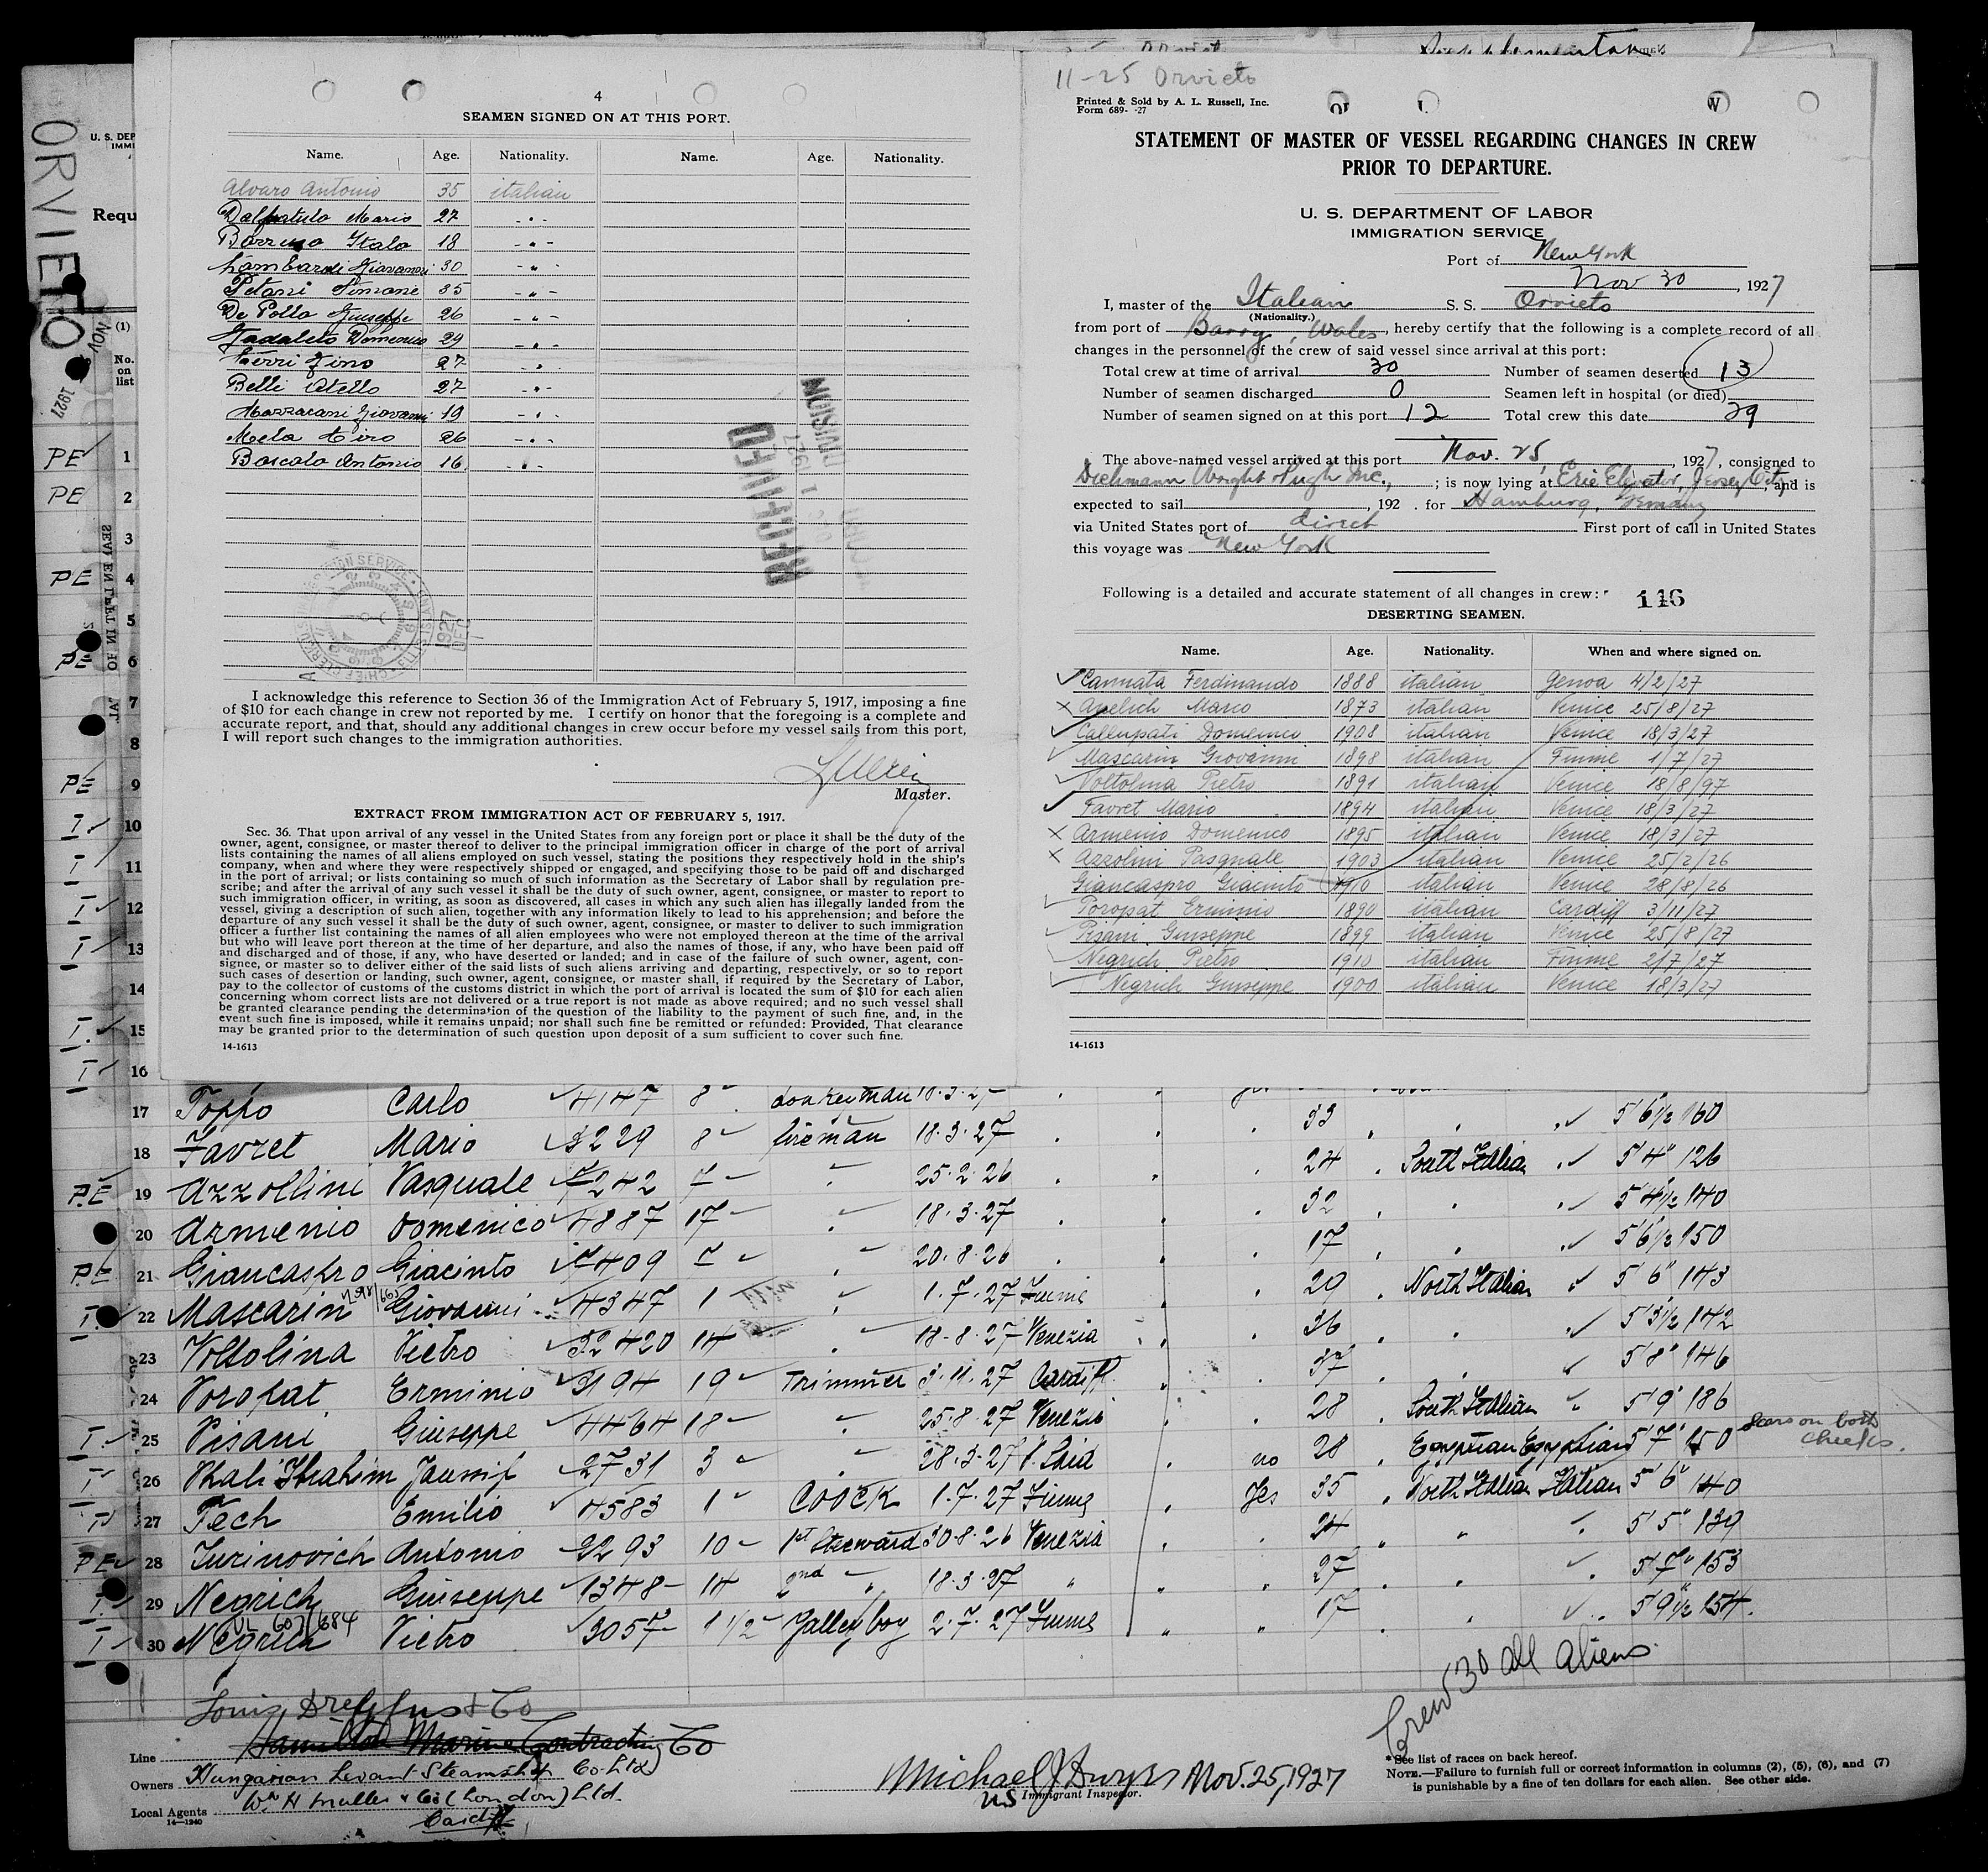 ORVIETO
NOV
1927
U. S. DEP
IMMI
Requ
(1)
No.
on
list
4
SEAMEN SIGNED ON AT THIS PORT.
Name. Age. Nationality. Name. Age. Nationality.
Alvaro Antonio 35 italian
Mario 27 - " -
Italo 18 - " -
Lombardi Giovanni 30 - " -
Petani Simone 35 - " -
De Pollo Giuseppe 26 - " -
Gadaleto Domenico 29 - " -
Gino 27 - " -
Belli Otello 27 - " -
Giovanni 19 - " -
Mela Ciro 26 - " -
Boscolo Antonio 16 - " -
1927
I acknowledge this reference to Section 36 of the Immigration Act of February 5, 1917, imposing a fine
of $10 for each change in crew not reported by me. I certify on honor that the foregoing is a complete and
accurate report, and that, should any additional changes in crew occur before my vessel sails from this port,
I will report such changes to the immigration authorities.
Master.
EXTRACT FROM IMMIGRATION ACT OF FEBRUARY 5, 1917.
Sec. 36. That upon arrival of any vessel in the United States from any foreign port or place it shall be the duty of the
owner, agent, consignee, or master thereof to deliver to the principal immigration officer in charge of the port of arrival
lists containing the names of all aliens employed on such vessel, stating the positions they respectively hold in the ship's
company, when and where they were respectively shipped or engaged, and specifying those to be paid off and discharged
in the port of arrival; or lists containing so much of such information as the Secretary of Labor shall by regulation pre-
scribe; and after the arrival of any such vessel it shall be the duty of such owner, agent, consignee, or master to report to
such immigration officer, in writing, as soon as discovered, all cases in which any such alien has illegally landed from the
vessel, giving a description of such alien, together with any information likely to lead to his apprehension; and before the
departure of any such vessel it shall be the duty of such owner, agent, consignee, or master to deliver to such immigration
officer a further list containing the names of all alien employees who were not employed thereon at the time of the arrival
but who will leave port thereon at the time of her departure, and also the names of those, if any, who have been paid off
and discharged and of those, if any, who have deserted or landed; and in case of the failure of such owner, agent, con-
signee, or master so to deliver either of the said lists of such aliens arriving and departing, respectively, or so to report
such cases of desertion or landing, such owner, agent, consignee, or master shall, if required by the Secretary of Labor,
pay to the collector of customs of the customs district in which the port of arrival is located the sum of $10 for each alien
concerning whom correct lists are not delivered or a true report is not made as above required; and no such vessel shall
be granted clearance pending the determination of the question of the liability to the payment of such fine, and, in the
event such fine is imposed, while it remains unpaid; nor shall such fine be remitted or refunded: Provided, That clearance
may be granted prior to the determination of such question upon deposit of a sum sufficient to cover such fine.
14-1613
11-25 Orvieto
Printed & Sold by A. L. Russell, Inc.
Form 689- -27
STATEMENT OF MASTER OF VESSEL REGARDING CHANGES IN CREW
PRIOR TO DEPARTURE.
U. S. DEPARTMENT OF LABOR
IMMIGRATION SERVICE
Port of New York
Nov 30, 1927
I, master of the Italian S. S. Orvieto
(Nationality.)
from port of Barry, Wales, hereby certify that the following is a complete record of all
changes in the personnel of the crew of said vessel since arrival at this port:
Total crew at time of arrival 30 Number of seamen deserted 13
Number of seamen discharged 0 Seamen left in hospital (or died)
Number of seamen signed on at this port 12 Total crew this date 29
The above-named vessel arrived at this port Nov. 25, 1927, consigned to
Dichmann Wright & Pugh Inc., ; is now lying at Erie Elevator, Jersey City, and is
expected to sail , 192 . for Hamburg, Germany
via United States port of direct First port of call in United States
this voyage was New York
Following is a detailed and accurate statement of all changes in crew: 146
DESERTING SEAMEN.
Name. Age. Nationality. When and where signed on.
✓ Cannata Ferdinando 1888 italian Genoa 4/2/27
x Anelich Marco 1873 italian Venice 25/8/27
✓ Domenico 1908 italian Venice 18/3/27
✓ Mascarin Giovanni 1898 italian Fiume 1/7/27
✓ Voltolina Pietro 1891 italian Venice 18/8/97
✓ Favret Mario 1894 italian Venice 18/3/27
x Armenio Domenico 1895 italian Venice 18/3/27
x Azzolini Pasquale 1903 italian Venice 25/2/26
Giancaspro Giacinto 1910 italian Venice 28/8/26
✓ Poropat Erminio 1890 italian Cardiff 3/11/27
✓ Pisani Giuseppe 1899 italian Venice 25/8/27
✓ Negrich Pietro 1910 italian Fiume 2/7/27
✓ Negrich Giuseppe 1900 italian Venice 18/3/27
14-1613
PE 1
PE 2
3
PE 4
5
PE 6
7
8
PE 9
I ✓ 10
I 11
I ✓ 12
I 13
14
I ✓ 15
I ✓ 16
17 Toppo Carlo ✓ 4147 8 Donkeyman 18.3.27
18 Favret Mario ✓ 3229 8 fireman 18.3.27 33 5'6½ 160
PE 19 Azzollini Pasquale ✓ 7242 7 " 25.2.26 24 South Italian ✓ 5'4" 126
20 Armenio Domenico ✓ 4887 17 " 18.3.27 32 " ✓ 5'4½ 140
PE 21 Giancaspro Giacinto ✓ 7409 7 " 20.8.26 17 " ✓ 5'6½ 150
I 22 Mascarin Giovanni ✓ 4347 1 " 1.7.27 Fiume 29 North Italian ✓ 5'6" 143
23 Voltolina Pietro ✓ 32420 14 " 18-8-27 Venezia 36 " ✓ 5'3½ 142
24 Poropat Erminio ✓ 3194 19 Trimmer 3.11.27 Cardiff 37 " ✓ 5'8" 146
I 25 Pisani Giuseppe ✓ 4464 18 " 25.8.27 Venezia 28 South Italian " 5'9" 186
I 26 Khali Ibrahim Jaussif ✓ 2731 3 " 28.3.27 P. Said no 28 Egyptian Egyptian 5'7" 150 Scars on both cheeks.
I 27 Tech Emilio ✓ 4583 1 Coock 1.7.27 Fiume Yes 35 North Italian Italian 5'6" 140
PE ✓ 28 Jurinovich Antonio ✓ 2293 10 1st Steward 30.8.26 Venezia 24 " ✓ 5'5" 139
I 29 Negrich Giuseppe ✓ 1348 14 2nd " 18.3.27 " 27 " ✓ 5'7" 153
I ✓ 30 Negrich Pietro ✓ 3057 1 1/2 Galley boy 2.7.27 Fiume 17 " ✓ 5'9½ 154.
Crew 30 all aliens
Louis Dreyfus & Co
Line Hamilton Marine Contracting Co
Owners Hungarian Levant Steamship Co Ltd
Local Agents Wm H Muller & Co (London) Ltd.
Cardiff
14-1240
Michael J Dwyer Nov. 25, 1927
US Immigrant Inspector.
*See list of races on back hereof.
NOTE.—Failure to furnish full or correct information in columns (2), (5), (6), and (7)
is punishable by a fine of ten dollars for each alien. See other side.